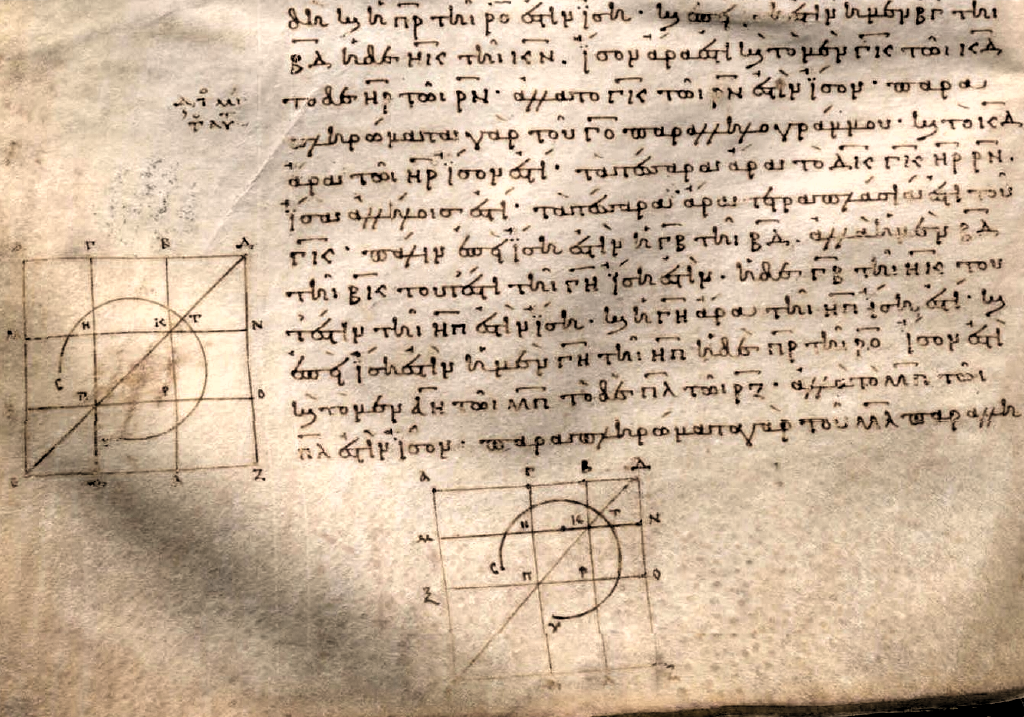 καὶ ἡ ΠΡ τῆι ΡΟ ἐστὶν ἴση· καὶ ἐπεὶ ἐστὶν ἡ μὲν ΒΓ τῆι
ΒΔ ἡ δὲ ΗΚ τῆι ΚΝ. ἴσον ἄρα ἐστὶ καὶ τὸ μὲν ΓΚ τῶι ΚΔ
τὸ δὲ ΗΡ τῶι ΡΝ· ἀλλὰ τὸ ΓΚ τῶι ΡΝ ἐστὶν ἴσον· παρα
πληρώματα γὰρ τοῦ ΓΟ παραλληλογράμμου· καὶ τὸ ΚΔ
ἄρα τῶι ΗΡ ἴσον ἐστί· τὰ τέσσαρα ἄρα τὸ ΔΚ ΓΚ ΗΡ ΡΝ.
ἴσα ἀλλήλοις ἐστί· τὰ τέσσαρα ἄρα τετραπλάσιά ἐστι τοῦ
ΓΚ· πάλιν ἐπεὶ ἴση ἐστὶν ἡ ΓΒ τῆι ΒΔ. ἀλλὰ ἡ μὲν ΒΔ
τῆι ΒΚ τουτέστι τῆι ΓΗ ἴση ἐστίν. ἡ δὲ ΓΒ τῆι ΗΚ του
τέστιν τῆι ΗΠ ἐστὶν ἴση· καὶ ἡ ΓΗ ἄρα τῆι ΗΠ ἴση ἐστί· καὶ
ἐπεὶ ἴση ἐστὶν ἡ μὲν ΓΗ τῆι ΗΠ ἡ δὲ ΠΡ τῆι ΡΟ ἴσον ἐστὶ
καὶ τὸ μὲν ΑΗ τῶι ΜΠ τὸ δὲ ΠΛ τῶι ΡΖ· ἀλλὰ τὸ ΜΠ τῶι
ΠΛ ἐστὶν ἴσον· παραπληρώματα γὰρ τοῦ ΜΛ παραλλη
Γ Β Δ
Η Κ Τ Ν
C
Π Ρ Ο
Ε Λ Ζ
Α Γ Β Δ
Μ Η Κ Τ Ν
C
Ξ Π Ρ Ο
Υ